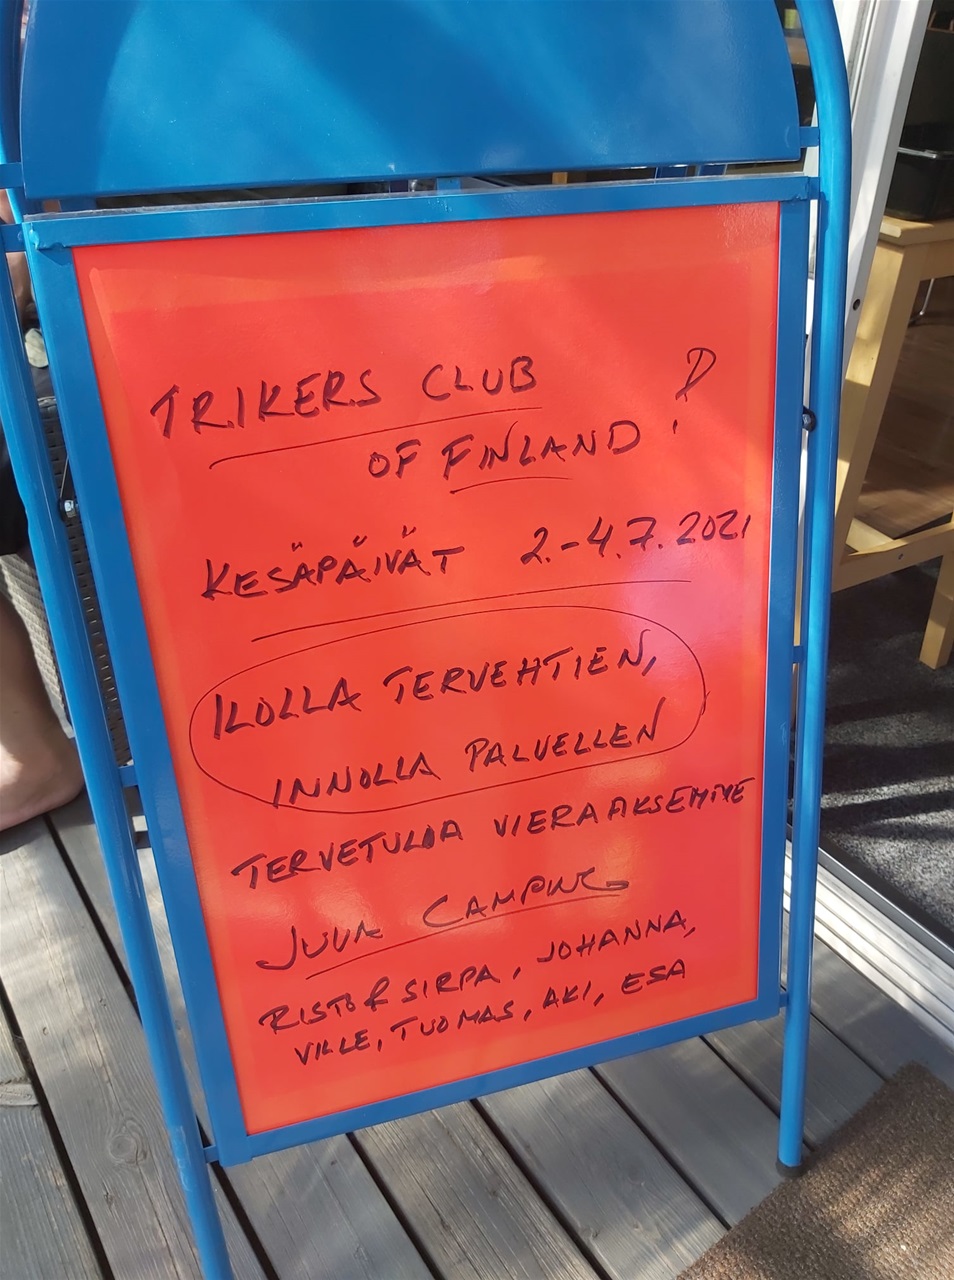 TRIKERS CLUB
OF FINLAND !
KESÄPÄIVÄT 2.-4.7.2021
ILOLLA TERVEHTIEN,
INNOLLA PALVELLEN
TERVETULOA VIERAAKSEMME
JUUA CAMPING
RISTO & SIRPA, JOHANNA,
VILLE, TUOMAS, AKI, ESA